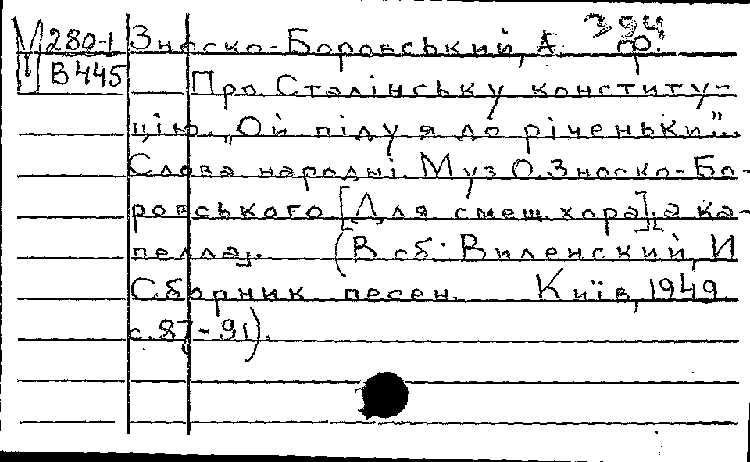 394
М 280-1 Зноско-Боровський, А. гр.
В 445 Про Сталінську конститу-
цію. „Ой піду я до річеньки"...
Слова народні Муз О. Зноско-Бо-
ровського [Для смеш. хора], а ка-
пелла. (В сб: Виленский, И
Сборник песен Київ, 1949
с. 87-91).